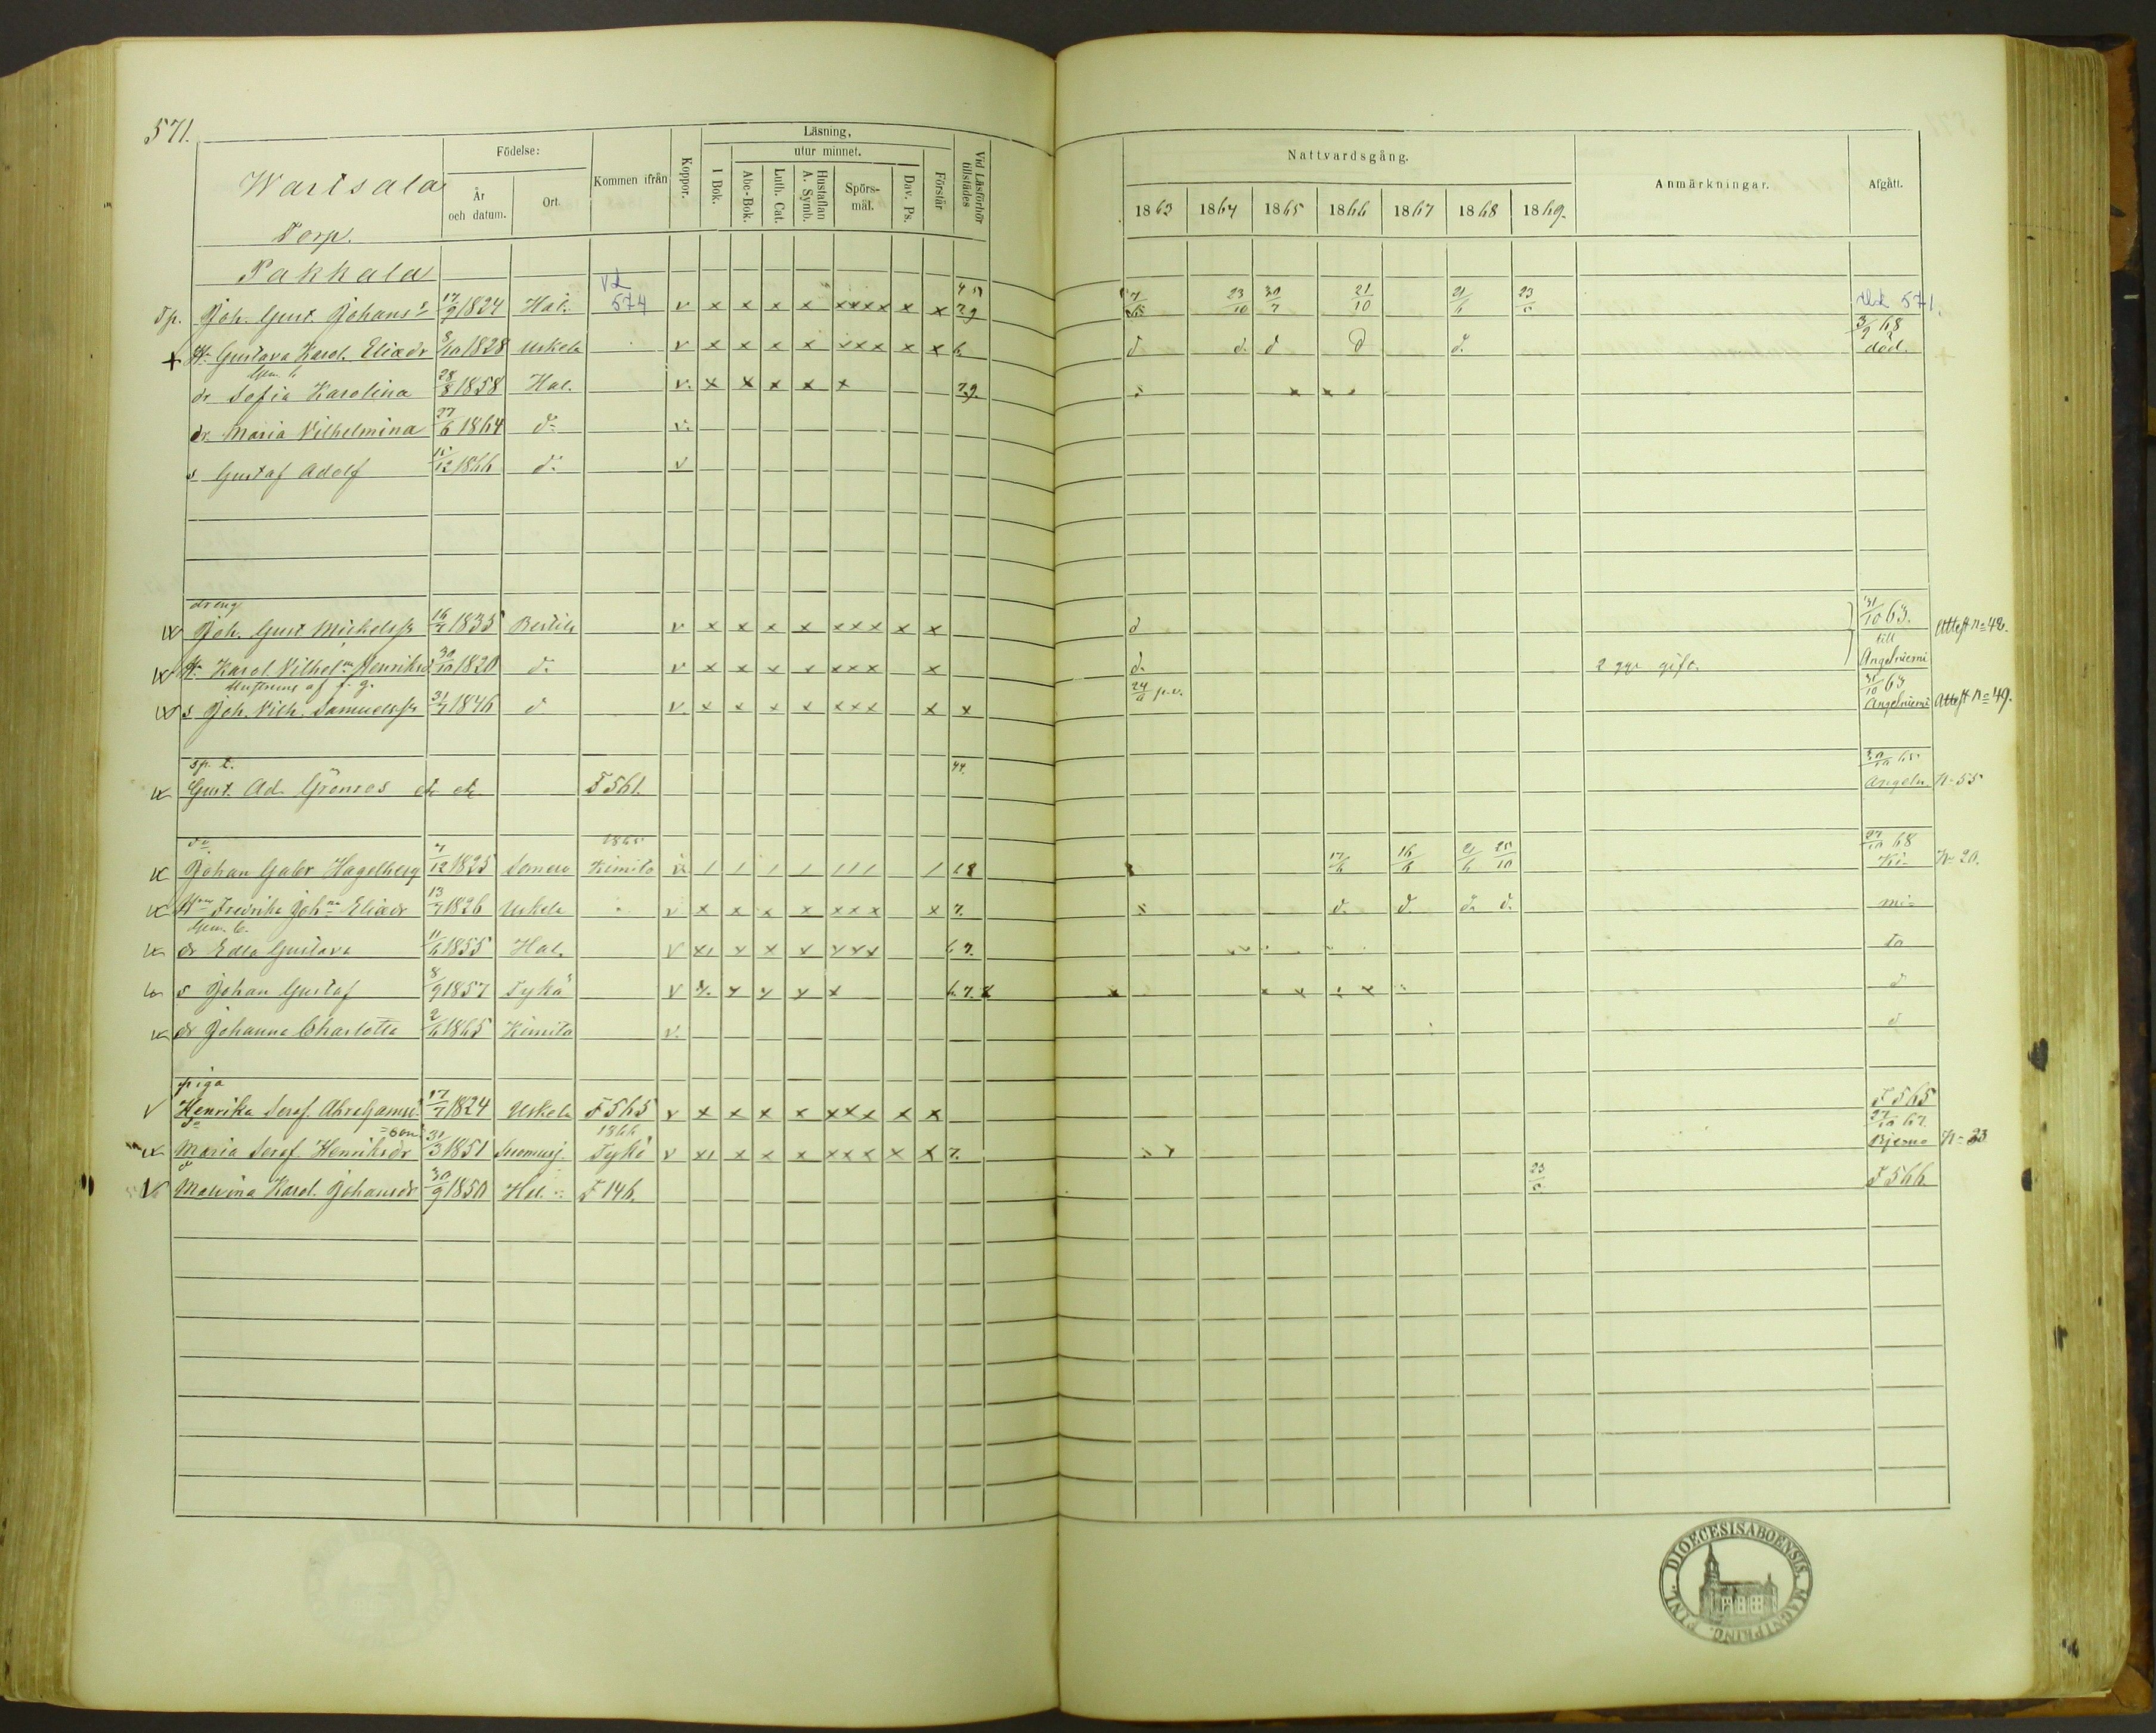 571.
Wartsala
Torp.
Födelse:
År och datum.
Ort.
Kommen ifrån
Koppor.
Läsning,
utur minnet.
I Bok.
Abc-Bok.
Luth. Cat.
Hustaflan A. Symb.
Spörs-mål.
Dav. Ps.
Förstår
Vid Läsförhör tillstädes
Nattvardsgång.
1863 1864 1865 1866 1867 1868 1869.
Anmärkningar.
Afgått.
Pakkala
Tp. Joh. Gust. Johanss 17/9 1824 Hal. 574 v x x x x xxxx x x 7.9 23/10 30/7 21/10 21/6 23/5 571.
+ H. Gustava Karol. Eliædr 8/10 1828 Uskela v x x x x xxx x x 6. d d. d d d. 3/9 68 död.
dr Sofia Karolina 28/8 1858 Hal. v. x x x x x 7.9.
dr. Maria Vilhelmina 27/6 1864 d:o v.
s Gustaf Adolf 11/12 1866 d:o v
dreng
Joh. Gust Mickelss 16/7 1835 Bertils v x x x x xxx x x d 31/10 63. till Attest No 48.
H. Karol. Vilhelm. Henriksd 30/10 1820 d. v x x x x xxx x d. 2 ggr gift. Angelniemi
Hustruns af f. g.
s Joh. Vilh. Samuelss 31/7 1846 d v. x x x x xxx x x 24/9 p.v. 31/10 63 Angelniemi Attest No 49.
sp. t. 44.
Gust. Ad. Grönros etc etc F 561. 30/10 65 Angeln. No 55
do 1865
Johan Gabr Hagelberg 7/12 1825 Somero Kimito v 1 1 1 1 111 1 68 17/6 16/6 21/6 25/10 27/10 68 Ki- No 20.
H. Fredrika Joh:na Eliædr 13/7 1826 Uskela v x x x x xxx x 7. d. d. d. d. mi-
dr Edla Gustava 11/6 1855 Hal. v xx x x x xxx 6.7. to
s Johan Gustaf 8/9 1857 Tykö v x. x x x x 6.7.8 d
dr Johanna Charlotta 2/6 1865 Kimito v. d
piga
v Henrika Seraf. Abrahamsd. 17/7 1824 Uskela F 565 v x x x x xxx x x F 565
1866 27/10 67.
Maria Seraf. Henriksdr 31/3 1851 Suomusj. Tykö v xx x x x xxx x x 7. Bjerno No 23
v Malvina Karol. Johansdr 30/9 1850 Hal. F 146. 23/5 F 566
FINL. DIOECESIS ABOENSIS. MAGNI PRINC.